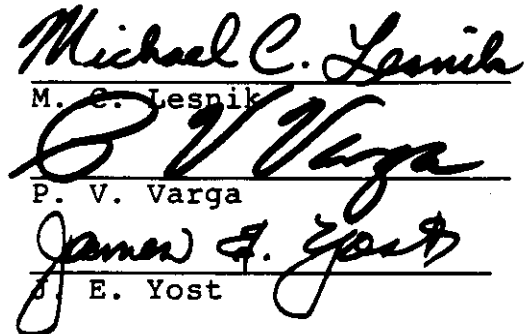 Michael C. Lesnik
M. C. Lesnik
P V Varga
P. V. Varga
James E. Yost
J. E. Yost